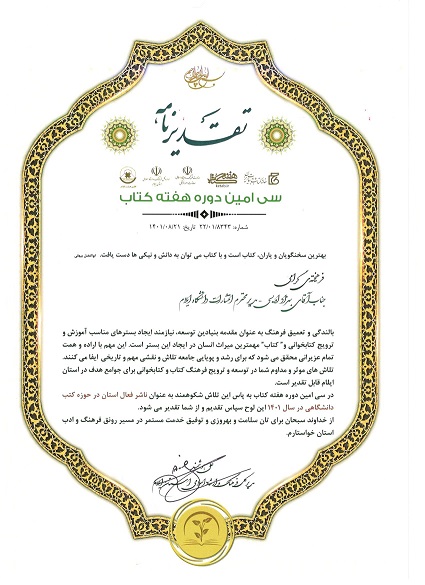 تقدیرنامه
سی امین دوره هفته کتاب
شماره: ۲۲/۰۱/۸۳۴۳ تاریخ: ۱۴۰۱/۰۸/۲۱
بهترین سخنگویان و یاران، کتاب است و با کتاب می توان به دانش و نیکی ها دست یافت.
فرهیخته ی گرامی
جناب آقای بهزاد اویسی - مدیر محترم انتشارات دانشگاه ایلام
بالندگی و تعمیق فرهنگ به عنوان مقدمه بنیادین توسعه، نیازمند ایجاد بسترهای مناسب آموزش و
ترویج کتابخوانی و "کتاب" مهمترین میراث انسان در ایجاد این بستر است. این مهم با اراده و همت
تمام عزیرانی محقق می شود که برای رشد و پویایی جامعه تلاش و نقشی مهم و تاریخی ایفا می کنند.
تلاش های موثر و مداوم شما در توسعه و ترویج فرهنگ کتاب و کتابخوانی برای جوامع هدف در استان
ایلام قابل تقدیر است.
در سی امین دوره هفته کتاب به پاس این تلاش شکوهمند به عنوان ناشر فعال استان در حوزه کتب
دانشگاهی در سال ۱۴۰۱ این لوح سپاس تقدیم و از شما تقدیر می شود.
از خداوند سبحان برای تان سلامت و بهروزی و توفیق خدمت مستمر در مسیر رونق فرهنگ و ادب
استان خواستارم.